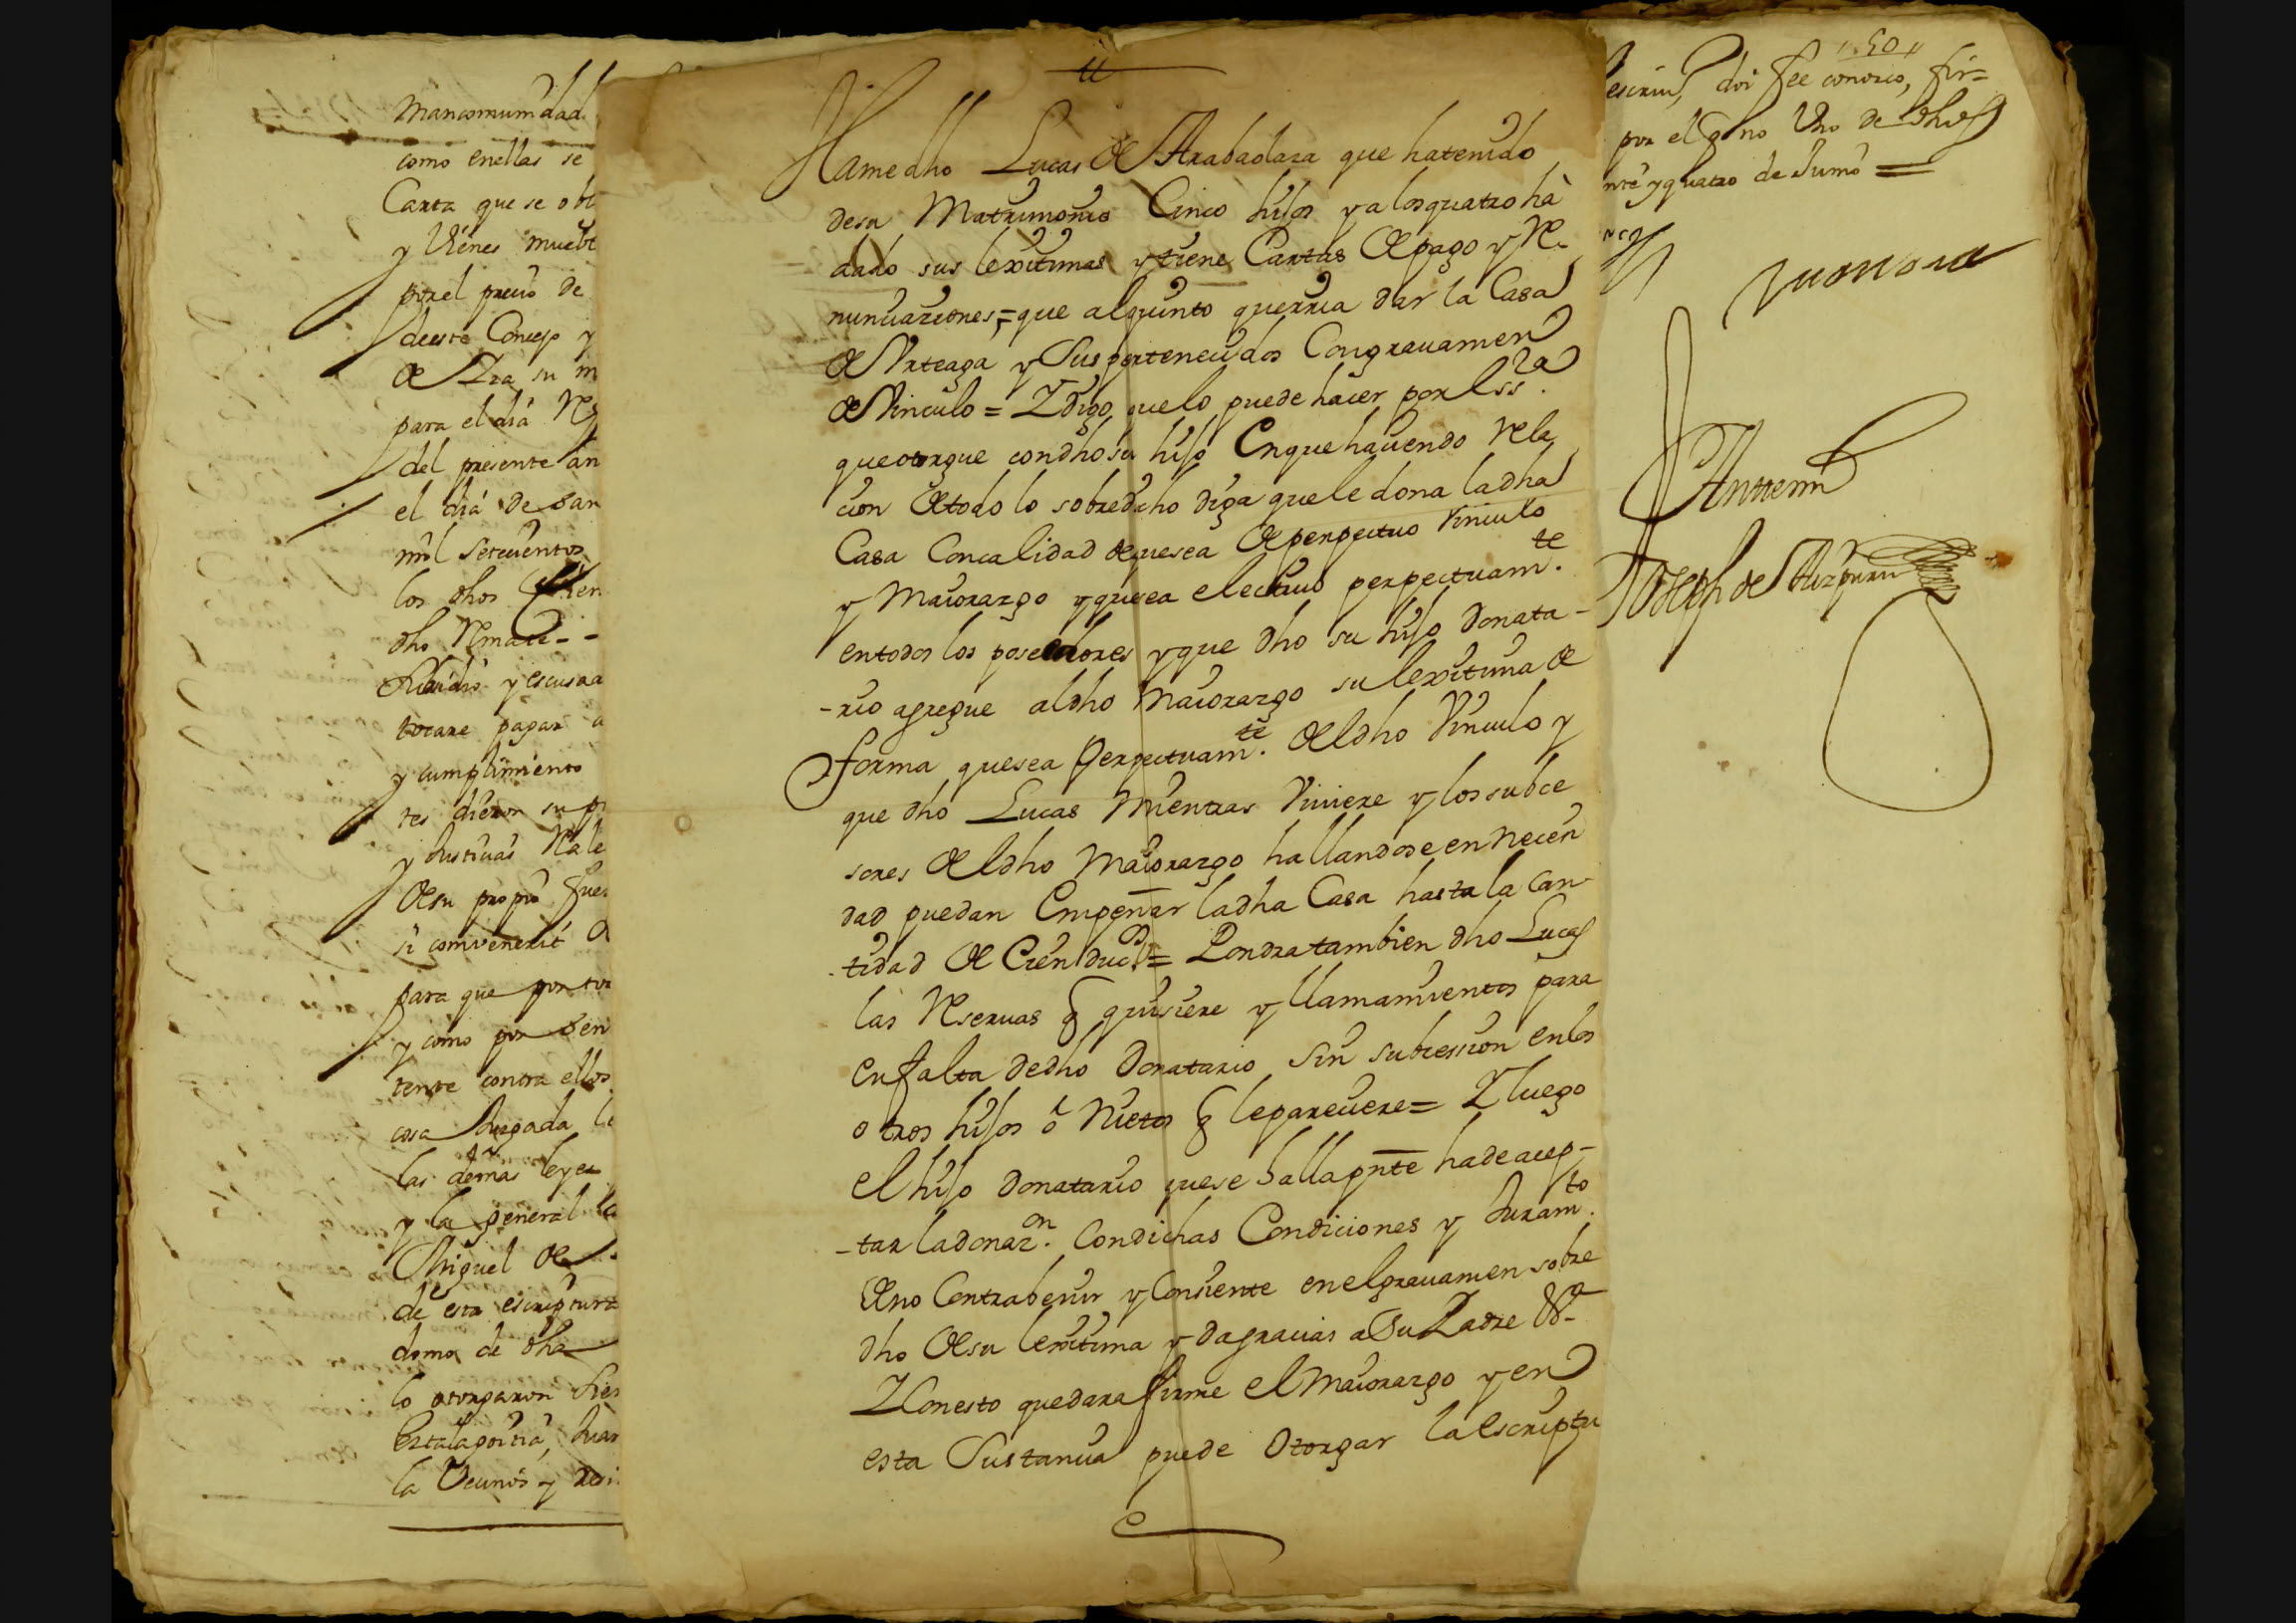 Mancomunidad
como enellas se
Carta que se obl
y Vienes mueble
por el precio de
deeste Concejo y
para el dia
del presente an
el dia de san
mil setecientos
los dhos
dho Remate - -
y escusa
tocare pagar a
y cumplimiento
tes dieron su po
y Justicias
desu propio fue
si convenerit
para que por to
y como por sen
tente contra ellos
cosa Juzgada
las demas leyes
y la general
Miguel de
de esta escriptura
domos de dha
lo otorgaron
la Vecinos y
Hame dho Lucas de Arabaolaza que hatenido
desu Matrimonio Cinco hijos y alosquatro hà
dado sus lexitimas y tiene Cartas de pago y Re-
nunciaziones = que alquinto querria dar la Casa
de Arteaga y Suspertenecidos Congrauamen
de Vinculo = Y digo quelo puede hacer por Ess.ra
queotorgue condhosu hijo Enquehauiendo Rela
cion de todo lo sobredicho diga quele dona ladha
Casa Concalidad dequesea de perpetuo Vinculo
y Maiorazgo yquesea electiuo perpectuam.te
entodos los poseedores yque dho su hijo Donata-
-rio agregue aldho Maiorazgo su lexitima de
forma quesea perpectuam.te deldho Vinculo y
que dho Lucas Mientras Viuiere y los subce
sores deldho Maiorazgo hallandose en Necesi
dad puedan Empeñar ladha Casa hasta la Can-
-tidad de Cien duc.s = Pondra tambien dho Lucas
las Reseruas q quisiere y llamamientos para
en falta dedho Donatario Sin subcession enlos
otros hijos ô Nietos q lepareciere = Y luego
el hijo Donatario quese halla pnte hadeacep-
-tar ladonaz.on Condichas Condiciones y Juram.to
deno Contrabenir y Consiente enelgrauamen sobre
dho desu lexitima y dagracias a Su Padre &a
Y Conesto quedara firme el Maiorazgo y en
esta Sustancia puede Otorgar la Escriptu
50
doi fee conozco, fir=
por el q no Vno de dhos
nte y quatro de Junio =
Anttemi
Joseph de Aizpuru